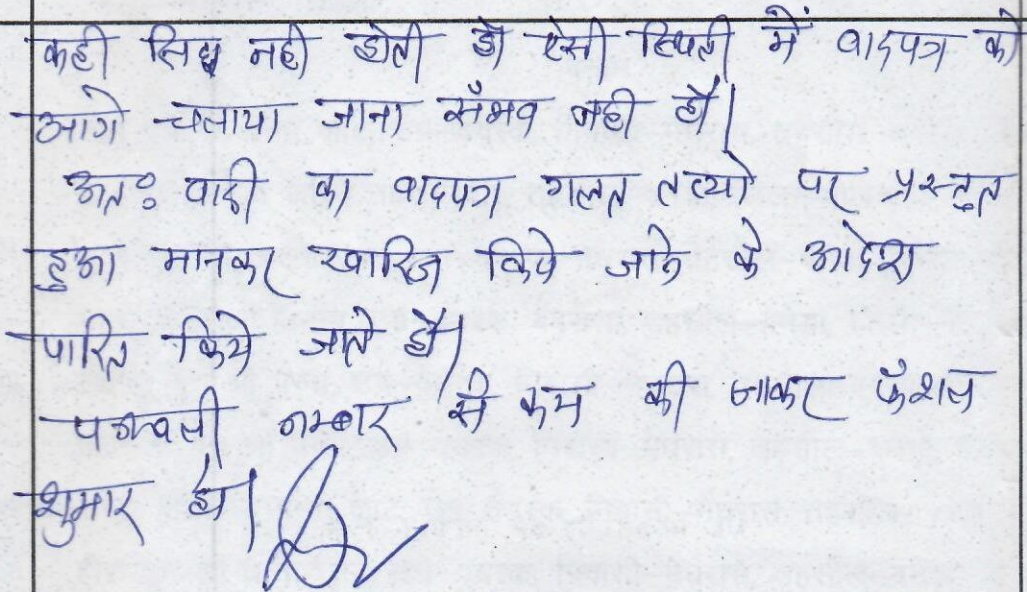 कही सिद्ध नही होती है ऐसी स्थिती में वादपत्र को
आगे चलाया जाना संभव नही है।
अतः वादी का वादपत्र गलत तथ्यो पर प्रस्तुत
हुआ मानकर खारिज किये जाने के आदेश
पारित किये जाते है।
पत्रावली नम्बर से कम की जाकर फैशल
शुमार हो।